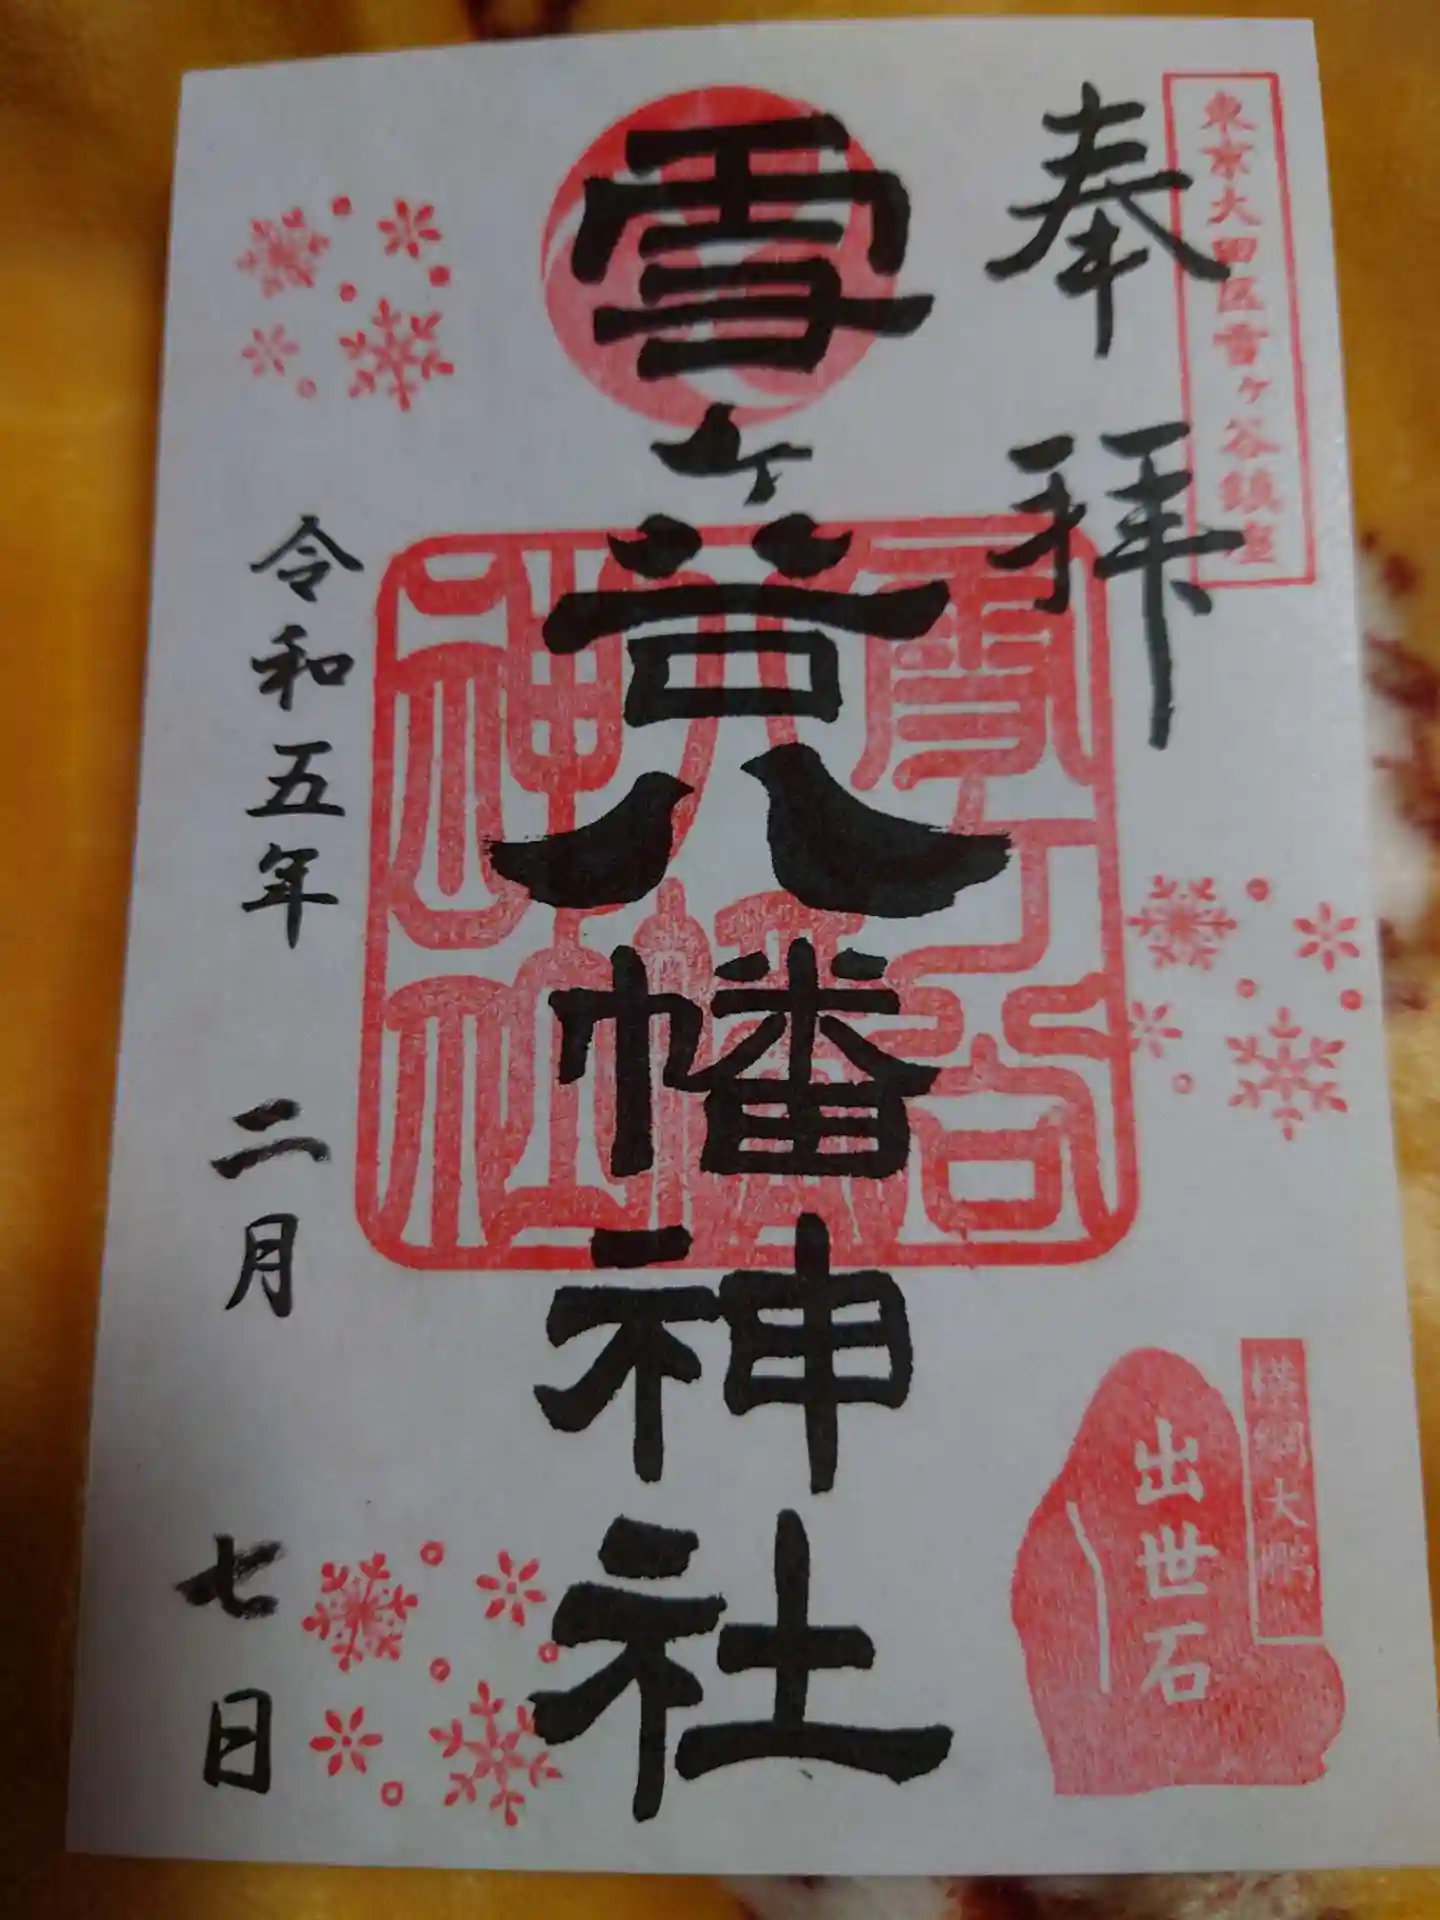 東京大田区雪ヶ谷鎮座
奉拝
横綱大鵬
出世石
雪ヶ谷八幡神社
雪ヶ谷
八幡
神社
令和五年二月七日